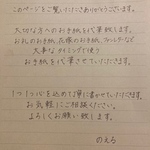 このページをご覧いただきありがとうございます。
大切な方へのお手紙を代筆致します。
お礼のお手紙、花嫁のお手紙、ファンレターなど
大事なタイミングで使う
お手紙を代筆させていただきます。
1つ1つ心を込めて丁寧に書かせていただきます。
お気軽にご相談ください。
よろしくお願い致します。
のえる